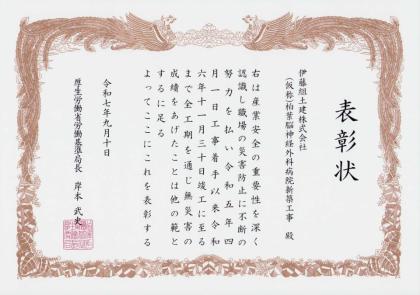 表彰状
伊藤組土建株式会社
(仮称)柏葉脳神経外科病院新築工事 殿
右は産業安全の重要性を深く
認識し職場の災害防止に不断の
努力を払い令和五年四
月一日工事着手以来令和
六年十一月三十日竣工に至る
まで全工期を通じ無災害の
成績をあげたことは他の範と
するに足る
よってここにこれを表彰する
令和七年九月十日
厚生労働省労働基準局長 岸本武史